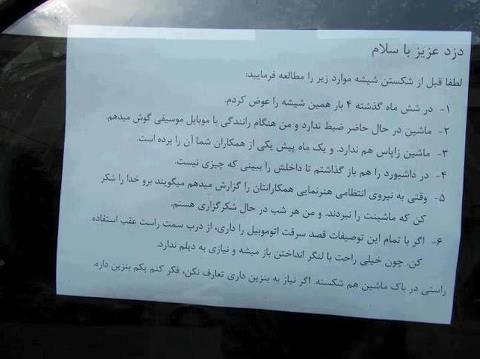 دزد عزیز با سلام
لطفا قبل از شکستن شیشه موارد زیر را مطالعه فرمایید:
۱- در شش ماه گذشته ۴ بار همین شیشه را عوض کردم.
۲- ماشین در حال حاضر ضبط ندارد و من هنگام رانندگی با موبایل موسیقی گوش میدهم.
۳- ماشین زاپاس هم ندارد. و یک ماه پیش یکی از همکاران شما آن را برده است.
۴- در داشبورد را هم باز گذاشتم تا داخلش را ببینی که چیزی نیست.
۵- وقتی به نیروی انتظامی هنرنمایی همکارانتان را گزارش میدهم میگویند برو خدا را شکر
کن که ماشینت را نبردند. و من هر شب در حال شکرگزاری هستم.
۶- اگر با تمام این توصیفات قصد سرقت اتوموبیل را داری، از درب سمت راست عقب استفاده
کن. چون خیلی راحت با لنگر انداختن باز میشه و نیازی به دیلم ندارد.
راستی در باک ماشین هم شکسته. اگر نیاز به بنزین داری تعارف نکن، فکر کنم یکم بنزین داره.